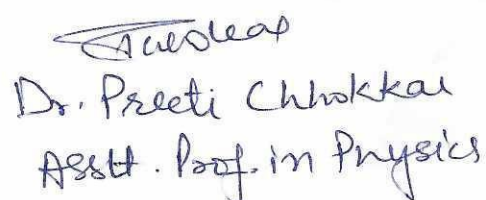 Dr. Preeti Chhokkar
Asstt. Prof. in Physics